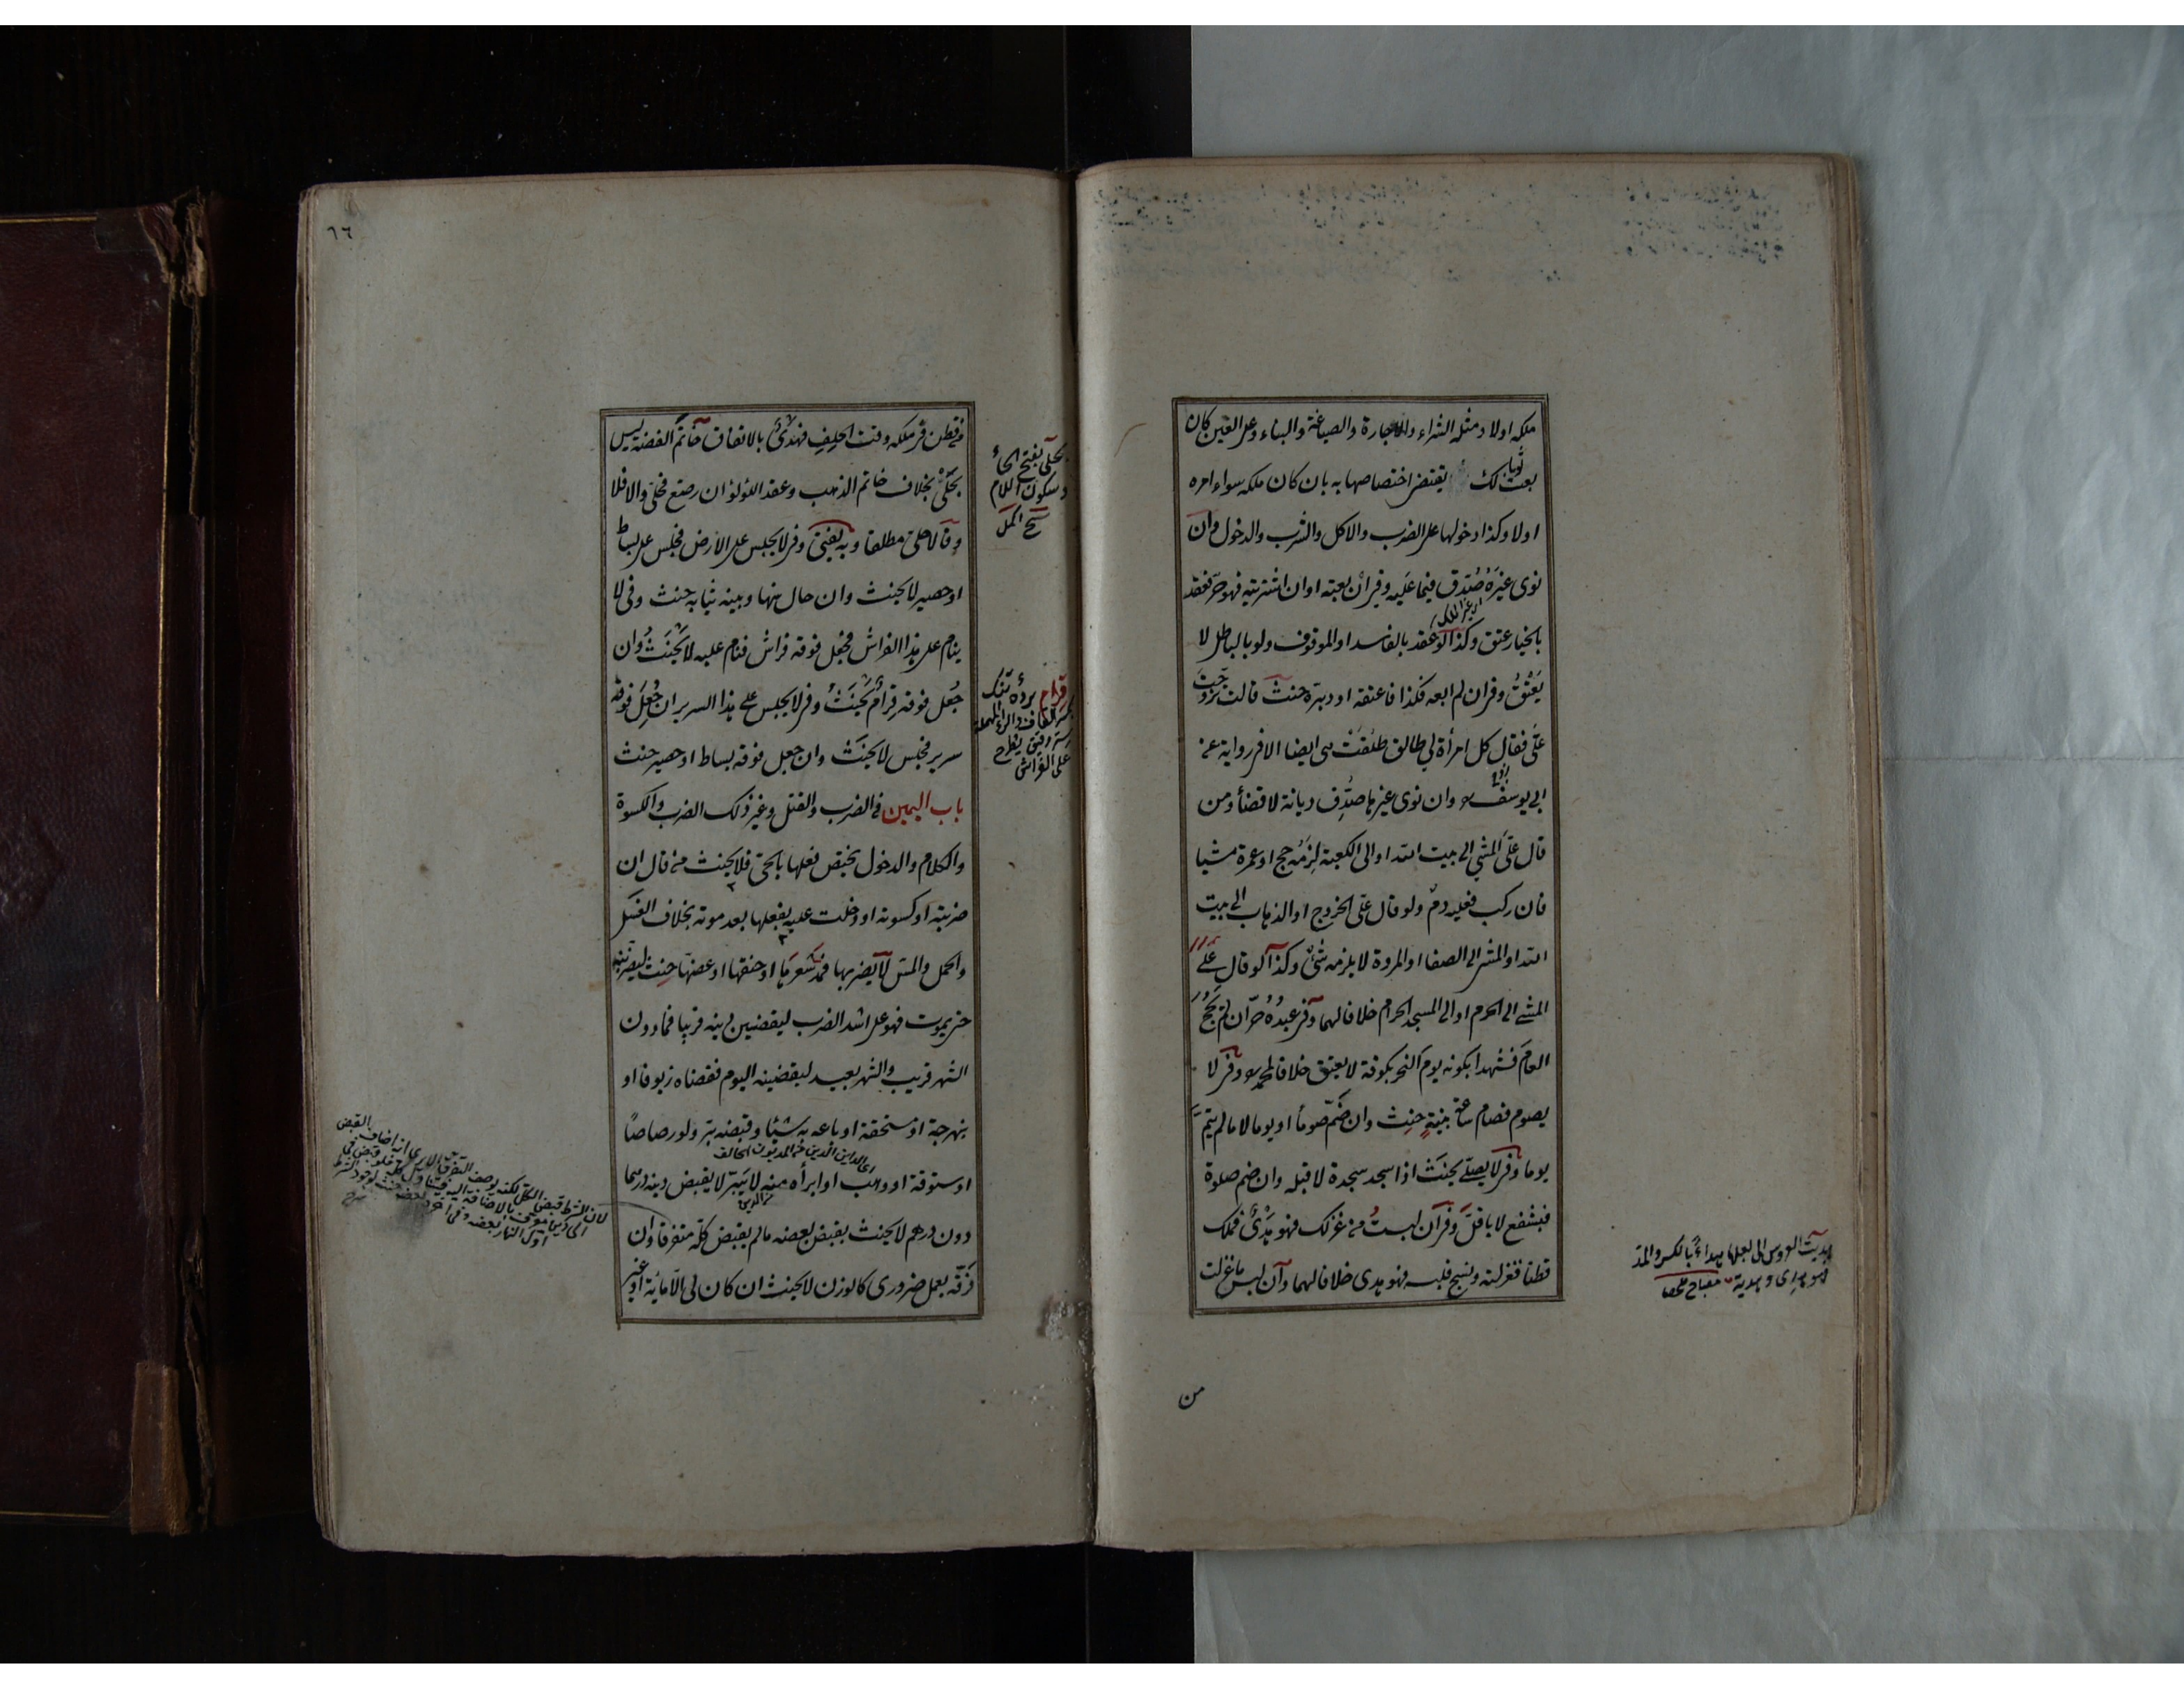 ملكه اولا ومثله الشراء والاجارة والصياغة والبناء وعلى العين كان
بعت ثوبا لك يقتضى اختصاصها به بان كان ملكه سواء امره
اولا وكذا دخولها على الضرب والاكل والشرب والدخول وان
نوى غيره صدق فيما عليه وفى ان بعته او ان اشتريته فهو حر فعقد
بالخيار عتق وكذا لو عقد بالفاسد او الموقوف ولو بالباطل لا
يعتق وفى ان لم ابعه فكذا فاعتقه او دبره حنث قالت تزوجت
على فقال كل امرأة لى طالق طلقت هى ايضا الا فى رواية عن
ابى يوسف وان نوى غيرها صدق ديانة لا قضأ ومن
قال على المشى الى بيت الله او الى الكعبة لزمه حج او عمرة مشيا
فان ركب فعليه دم ولو قال على الخروج او الذهاب الى بيت
الله او المشى الى الصفا او المروة لا يلزمه شئ وكذا لو قال على
المشى الى الحرم او الى المسجد الحرام خلافا لهما وفى عبده حر ان لم يحج
العام فشهدا بكونه يوم النحر بكوفة لا يعتق خلافا لمحمد وفى لا
يصوم فصام ساعة بنية حنث وان ضم صوما او يوما لا ما لم يتم
يوما وفى لا يصلى يحنث اذا سجد سجدة لا قبله وان ضم صلوة
فبشفع لا باقل وفى ان لبست من غزلك فهو هدى فملك
قطنا فغزلته ونسج فلبسه فهو هدى خلافا لهما وان لبس ما غزلت
من
هديت العروس الى بعلها هداء بالكسر والمد
٦٦
من قطن فى ملكه وقت الحلف فهدى بالاتفاق خاتم الفضة ليس
بحلى بخلاف خاتم الذهب وعقد اللؤلؤ ان رصع فحلى والا فلا
وقالا حلى مطلقا وبه يفتى وفى لا يجلس على الارض فجلس على بساط
او حصير لا يحنث وان حال بينها وبينه ثيابه حنث وفى لا
ينام على هذا الفراش فجعل فوقه فراش فنام عليه لا يحنث وان
جعل فوقه قرام يحنث وفى لا يجلس على هذا السرير ان جعل فوقه
سرير فجلس لا يحنث وان جعل فوقه بساط او حصير حنث
باب اليمين فى الضرب والقتل وغير ذلك الضرب والكسوة
والكلام والدخول يختص فعلها بالحى فلا يحنث من قال ان
ضربته او كسوته او دخلت عليه بفعلها بعد موته بخلاف الغسل
والحمل والمس لا يضربها فمد شعرها او خنقها او عضها حنث ليضربنه
حتى يموت فهو على اشد الضرب ليقضين دينه قريبا فما دون
الشهر قريب والشهر بعيد ليقضينه اليوم فقضاه زيوفا او
بنهرجة او مستحقة او باعه به شيئا وقبضه بر ولو رصاصا
او ستوقة او وهب او ابرأه منه لا يبر لا يقبض دينه درهما
دون درهم لا يحنث بقبض بعضه ما لم يقبض كله متفرقا وان
فرقه بعمل ضرورى كالوزن لا يحنث ان كان لى الا مائة او غير
بحلى بفتح الحاء
وسكون اللام
قرام پرده تنك
بكسر القاف والراء المهملة
ستر رقيق يطرح
على الفراش